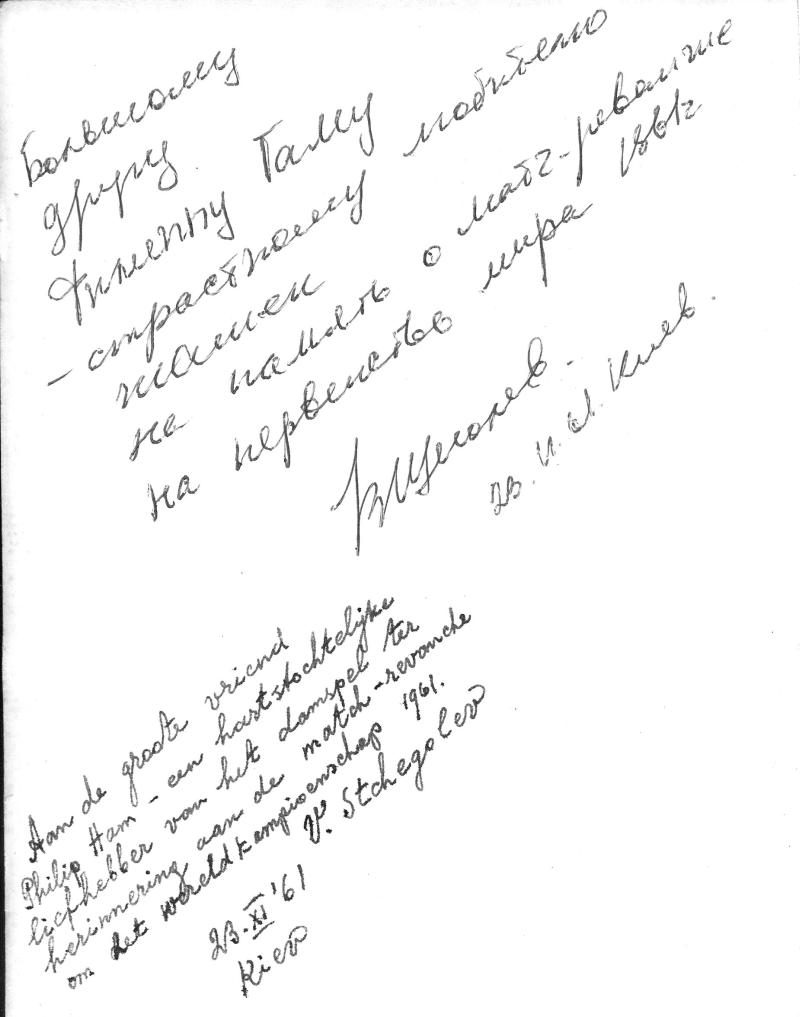 Большому
другу
Филиппу Гаму
- страстному любителю
шашек
на память о матч-реванше
на первенство мира 1961г
ВЩеголев.
Киев.
Aan de groote vriend
Philip Ham - een hartstochtelijke
liefhebber van het damspel ter
herinnering aan de match-revanche
om het wereldkampioenschap 1961.
V. Stchegolev
23.XI '61
Kiev